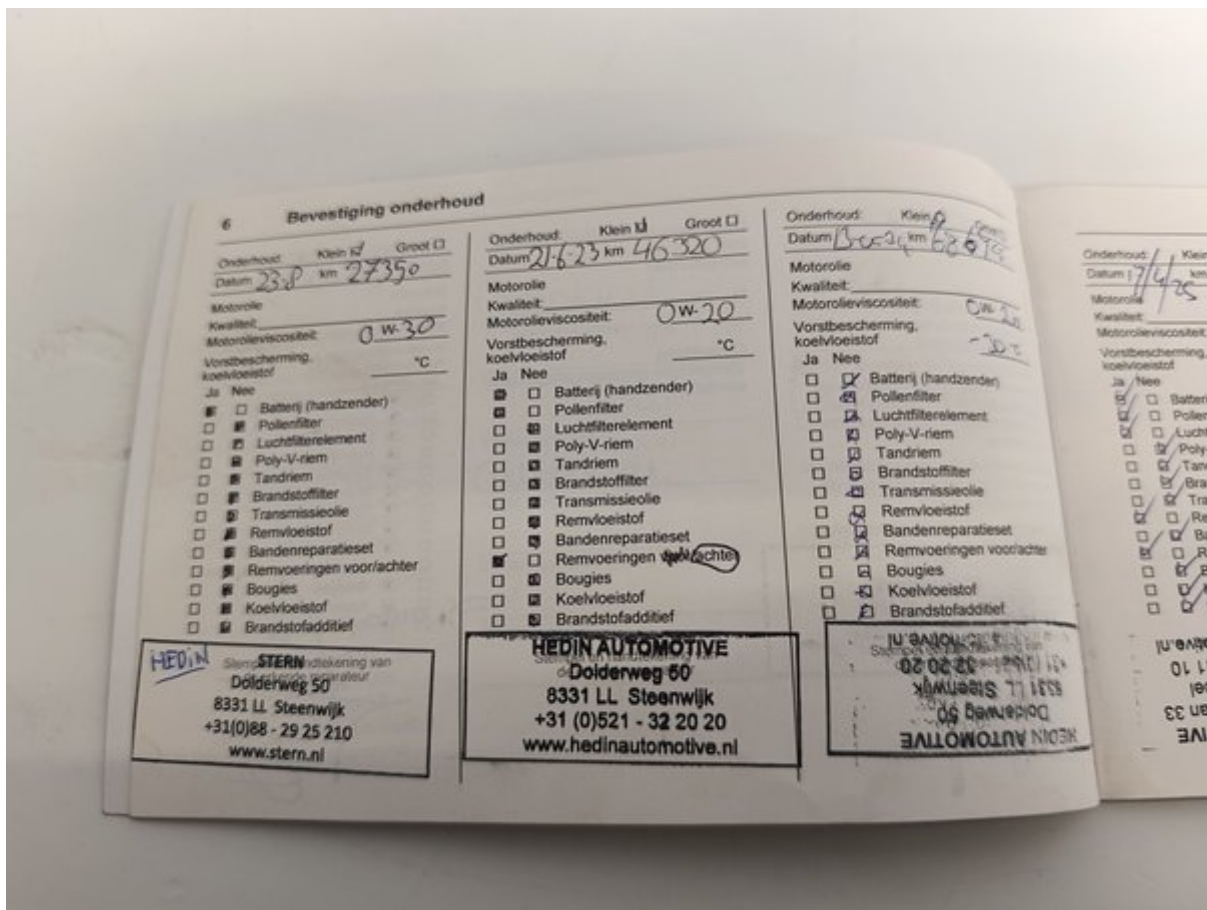 6 Bevestiging onderhoud
Onderhoud: Klein Groot
Datum 23-8 km 27350
Motorolie
Kwaliteit:
Motorolieviscositeit: 0W-30
Vorstbescherming,
koelvloeistof °C
Ja Nee
Batterij (handzender)
Pollenfilter
Luchtfilterelement
Poly-V-riem
Tandriem
Brandstoffilter
Transmissieolie
Remvloeistof
Bandenreparatieset
Remvoeringen voor/achter
Bougies
Koelvloeistof
Brandstofadditief
HEDIN
STERN
Dolderweg 50
8331 LL Steenwijk
+31(0)88 - 29 25 210
www.stern.nl
Onderhoud: Klein Groot
Datum 21-6-23 km 46320
Motorolie
Kwaliteit:
Motorolieviscositeit: 0W-20
Vorstbescherming,
koelvloeistof °C
Ja Nee
Batterij (handzender)
Pollenfilter
Luchtfilterelement
Poly-V-riem
Tandriem
Brandstoffilter
Transmissieolie
Remvloeistof
Bandenreparatieset
Remvoeringen voor/achter
Bougies
Koelvloeistof
Brandstofadditief
HEDIN AUTOMOTIVE
Dolderweg 50
8331 LL Steenwijk
+31 (0)521 - 32 20 20
www.hedinautomotive.nl
Onderhoud: Klein
Datum km
Motorolie
Kwaliteit:
Motorolieviscositeit: 0W-20
Vorstbescherming,
koelvloeistof -30
Ja Nee
Batterij (handzender)
Pollenfilter
Luchtfilterelement
Poly-V-riem
Tandriem
Brandstoffilter
Transmissieolie
Remvloeistof
Bandenreparatieset
Remvoeringen voor/achter
Bougies
Koelvloeistof
Brandstofadditief
HEDIN AUTOMOTIVE
Dolderweg 50
8331 LL Steenwijk
Onderhoud: Klein
Datum 17/4/25 km
Motorolie
Kwaliteit:
Motorolieviscositeit:
Vorstbescherming,
koelvloeistof
Ja Nee